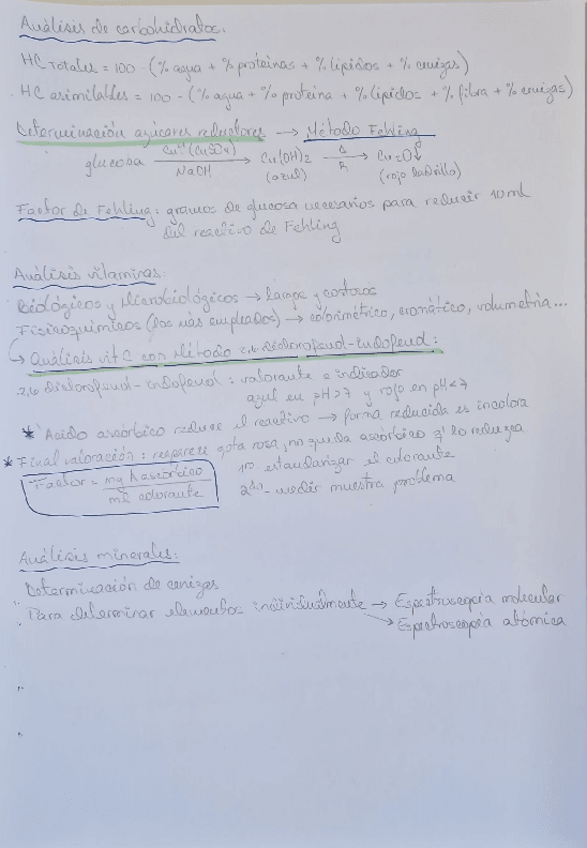 Análisis de carbohidratos.
HC totales = 100 - (% agua + % proteínas + % lípidos + % cenizas)
HC asimilables = 100 - (% agua + % proteína + % lípidos + % fibra + % cenizas)
Determinación azúcares reductores → Método Fehling
glucosa Cu²⁺ (CuSO₄) / NaOH → Cu(OH)₂ Δ → Cu₂O↓
(azul) (rojo ladrillo)
Factor de Fehling: gramos de glucosa necesarios para reducir 10 ml
del reactivo de Fehling
Análisis vitaminas:
Biológicos y Microbiológicos → largos y costosos
Fisicoquímicos (los más empleados) → colorimétrico, cromático, volumetría...
↳ Análisis vit C con Método 2,6 Diclorofenol-Indofenol:
2,6 Diclorofenol-Indofenol: valorante e indicador
azul en pH>7 y rojo en pH<7
* Ácido ascórbico reduce el reactivo → forma reducida es incolora
* Final valoración: reaparece gota rosa, no queda ascórbico q' lo reduzca
Factor = mg h ascórbico / ml colorante
1º- estandarizar el colorante
2º- medir muestra problema
Análisis minerales:
Determinación de cenizas
Para determinar elementos individualmente → Espectroscopía molecular
→ Espectroscopía atómica